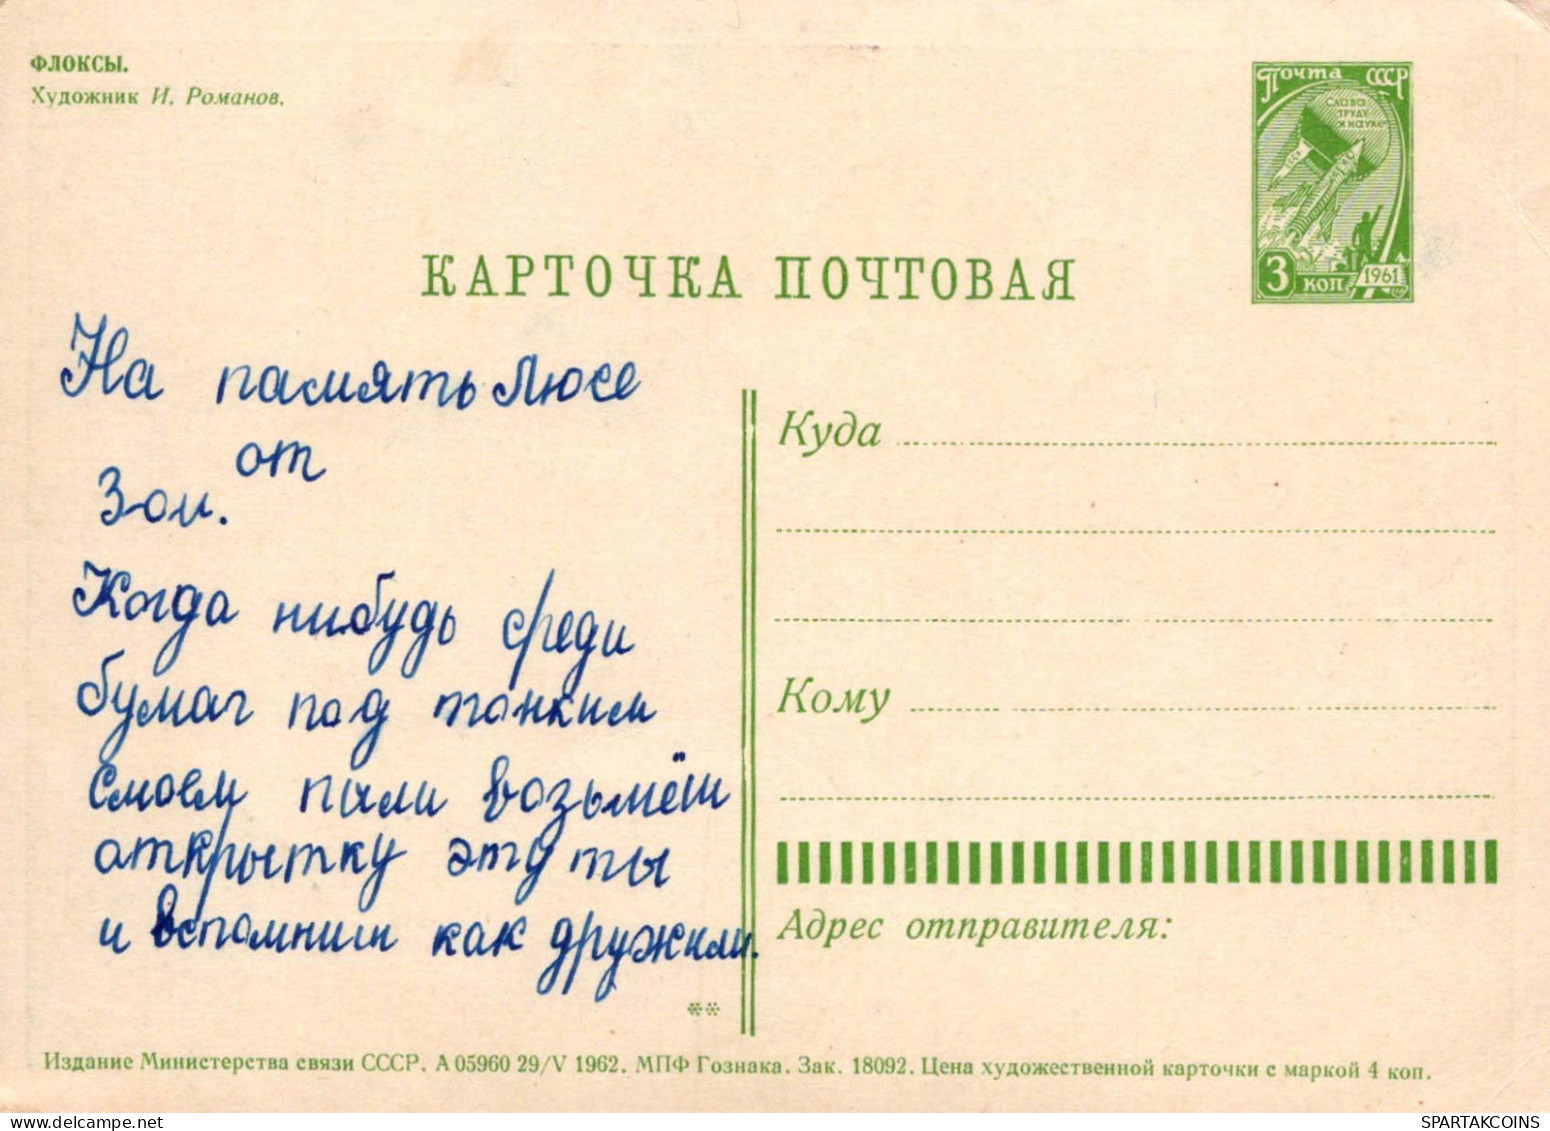 ФЛОКСЫ.
Художник И. Романов.
Почта СССР
СЛАВА
ТРУДУ
И НАУКЕ
3 КОП.
1961
КАРТОЧКА ПОЧТОВАЯ
На память Люсе
от
Зои.
Когда нибудь среди
бумаг под тонким
смоем пыли возьмёш
открытку эту ты
и вспомниш как дружили.
Куда
Кому
Адрес отправителя:
Издание Министерства связи СССР. А 05960 29/V 1962. МПФ Гознака. Зак. 18092. Цена художественной карточки с маркой 4 коп.
SPARTAKCOINS